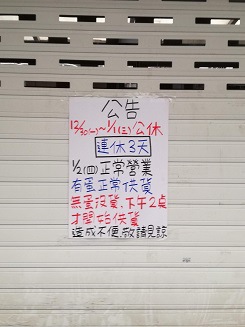 公告
12/30(一)~1/1(三)公休
連休3天
1/2(四)正常營業
有蛋正常供貨
無蛋沒貨.下午2点
才開始供貨
造成不便.敬請見諒